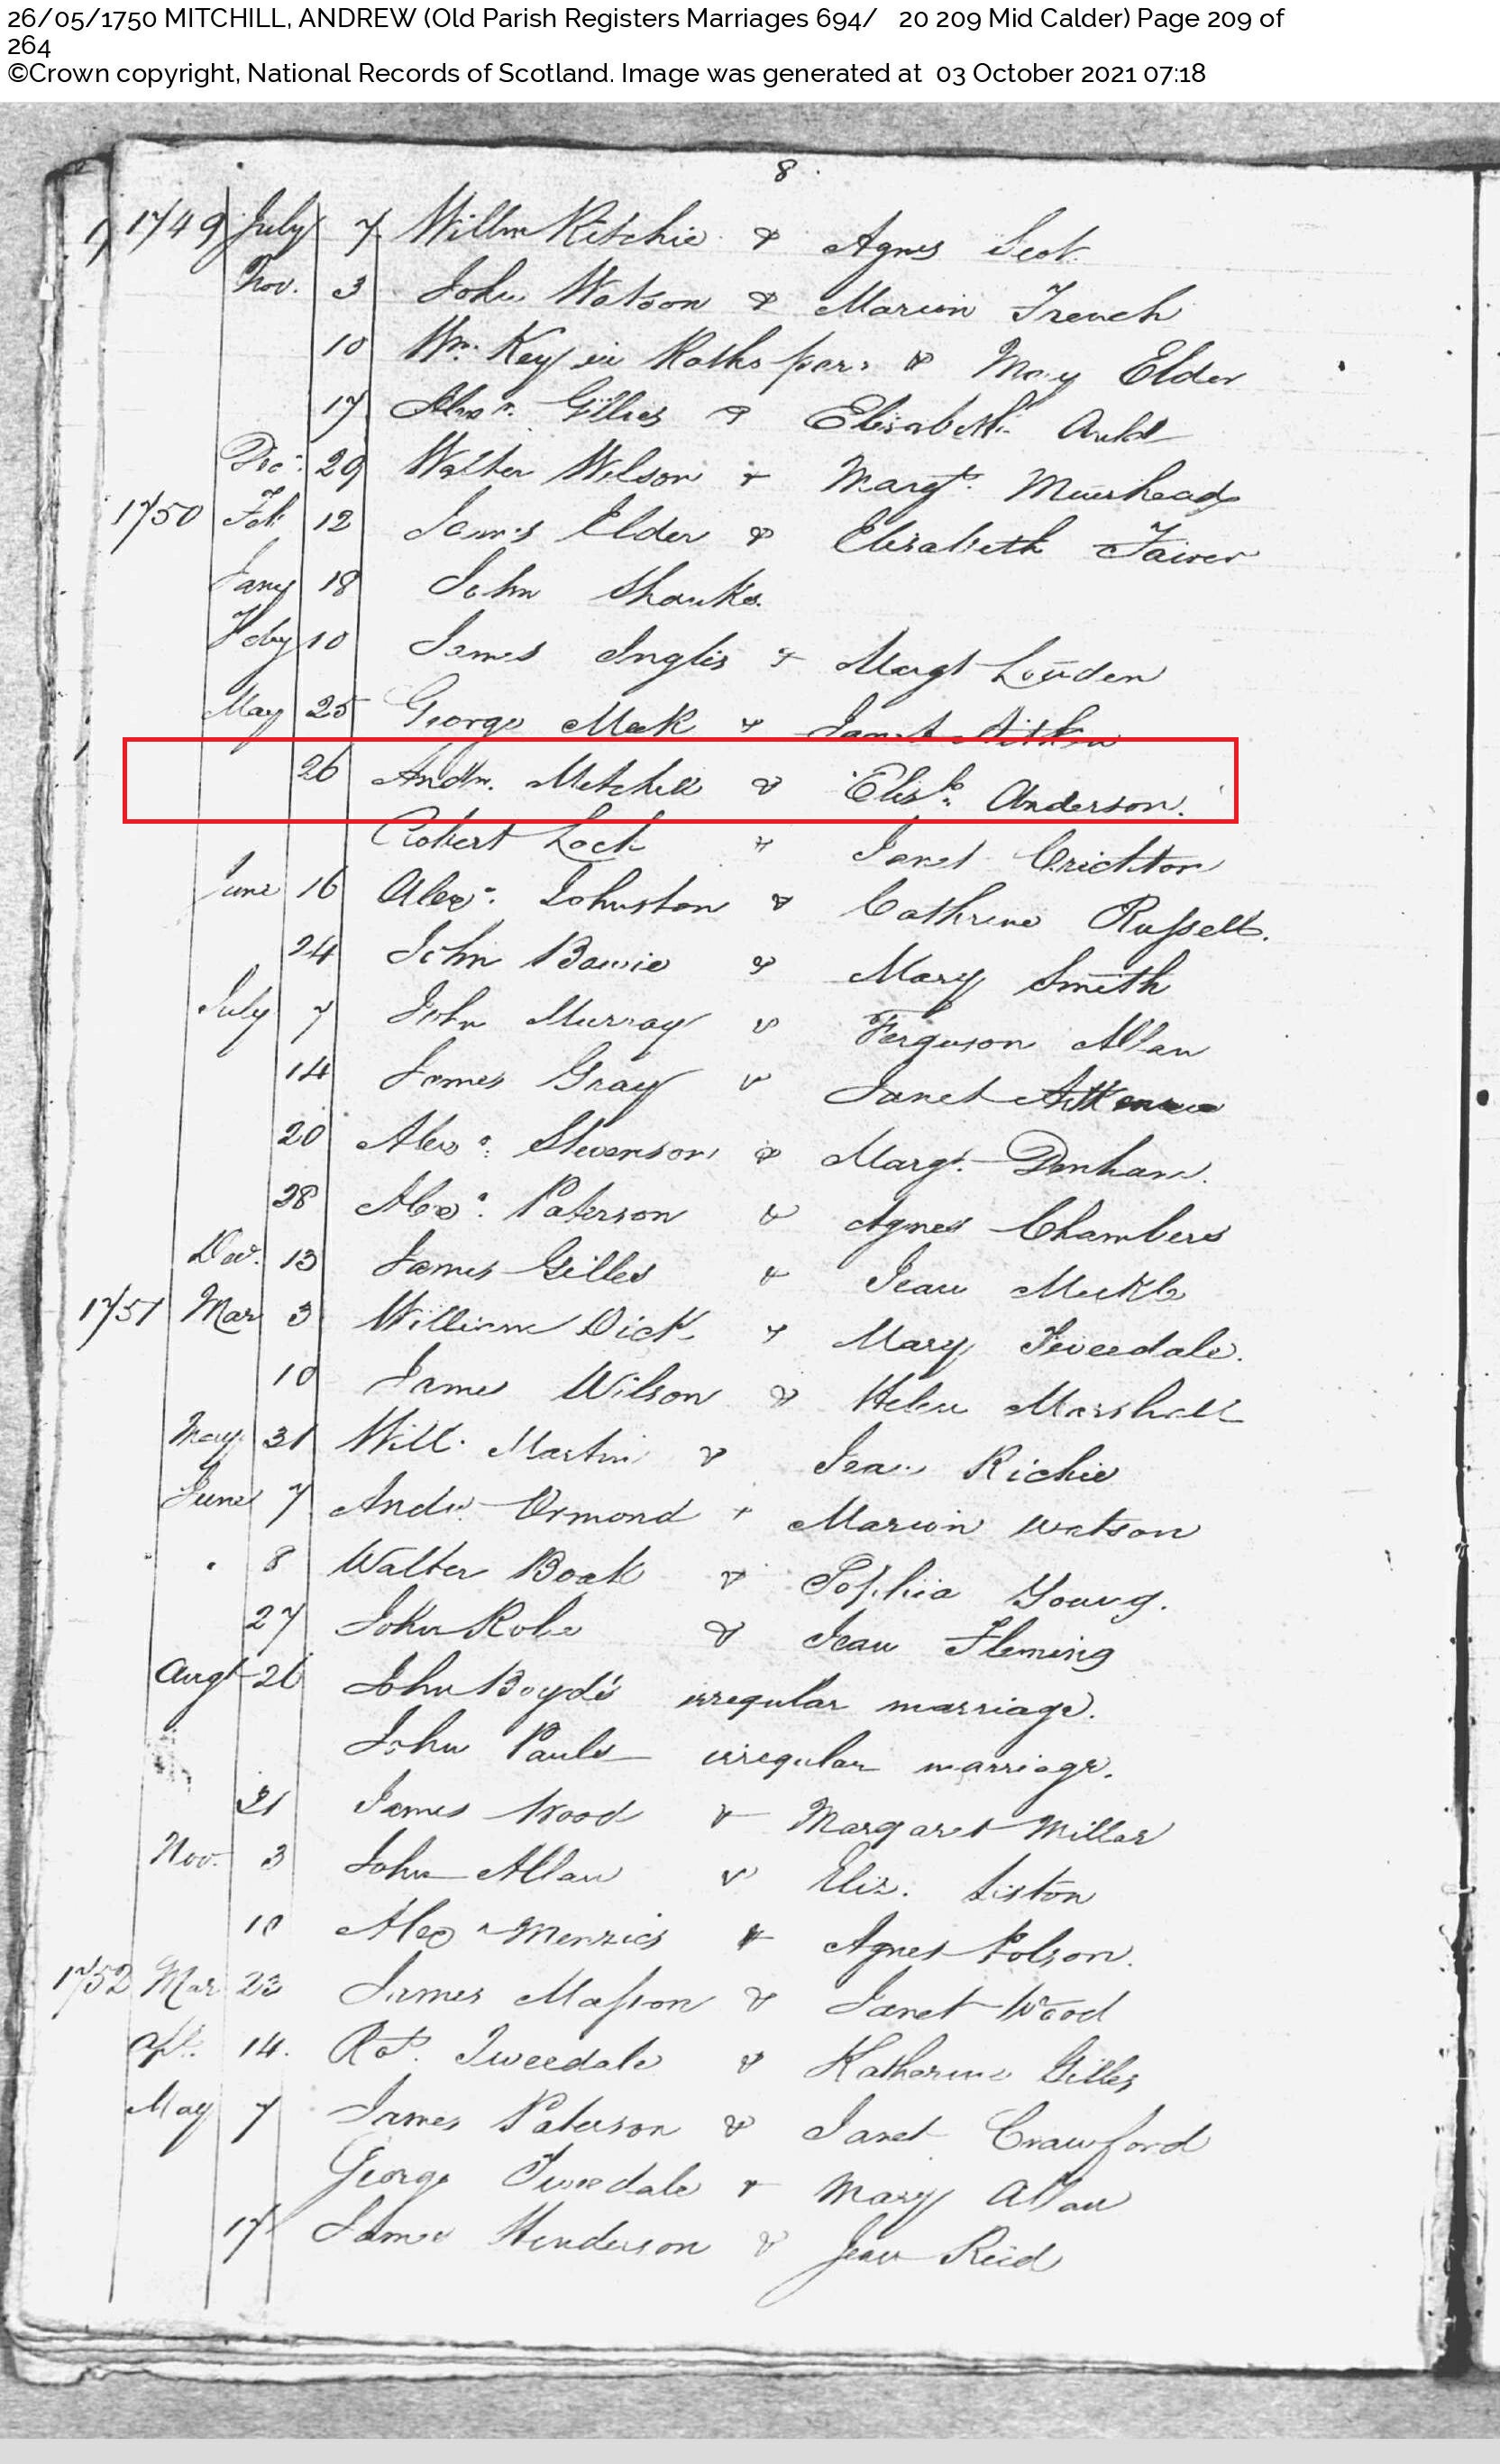 26/05/1750 MITCHILL, ANDREW (Old Parish Registers Marriages 694/ 20 209 Mid Calder) Page 209 of
264
©Crown copyright, National Records of Scotland. Image was generated at 03 October 2021 07:18
8
1749 July 7 Willm Ritchie & Agnes Scot
Nov. 3 John Watson & Marion French
10 Wm. Key in Ratho par: & May Elder
17 Alexr. Gillies & Elisabeth Auld
Dec. 29 Walter Wilson & Margt. Muirhead
1750 Feb 12 James Elder & Elisabeth
Jany 18 John Shanks
Feby 10 James Inglis & Margt Louden
May 25 George Meek & Janet Aitken
26 Andw. Mitchill & Elisb. Anderson.
Robert Lock & Janet Crichton
June 16 Alexr. Johnston & Cathrine Russell.
24 John Bowie & Mary Smith
July 7 John Murray & Ferguson Allan
14 James Gray & Janet
20 Alexr. Stevenson & Margt. Denham.
28 Alexr. Paterson & Agnes Chambers
13 James Gilles & Jean Meikle
1751 Mar 3 William Dick & Mary Tweedale.
10 James Wilson & Helen Marshall
May 31 Will. Martin & Jean Richie
June 7 Andw. Ormond & Marion Watson
8 Walter Boak & Sophia Young.
27 John Robe & Jean Fleming
Augt 26 John Boyd's irregular marriage.
John Pauls irregular marriage.
31 James Wood & Margaret Millar
Nov. 3 John Allan & Eliz. Liston
10 Alexr Menzies & Agnes Polson.
1752 Mar 23 James Masson & Janet Wood
Apr. 14. Rot. Tweedale & Katharine Gilles
May 7 James Paterson & Janet Crawford
George Tweedale & Mary Allan
17 James Henderson & Jean Reid